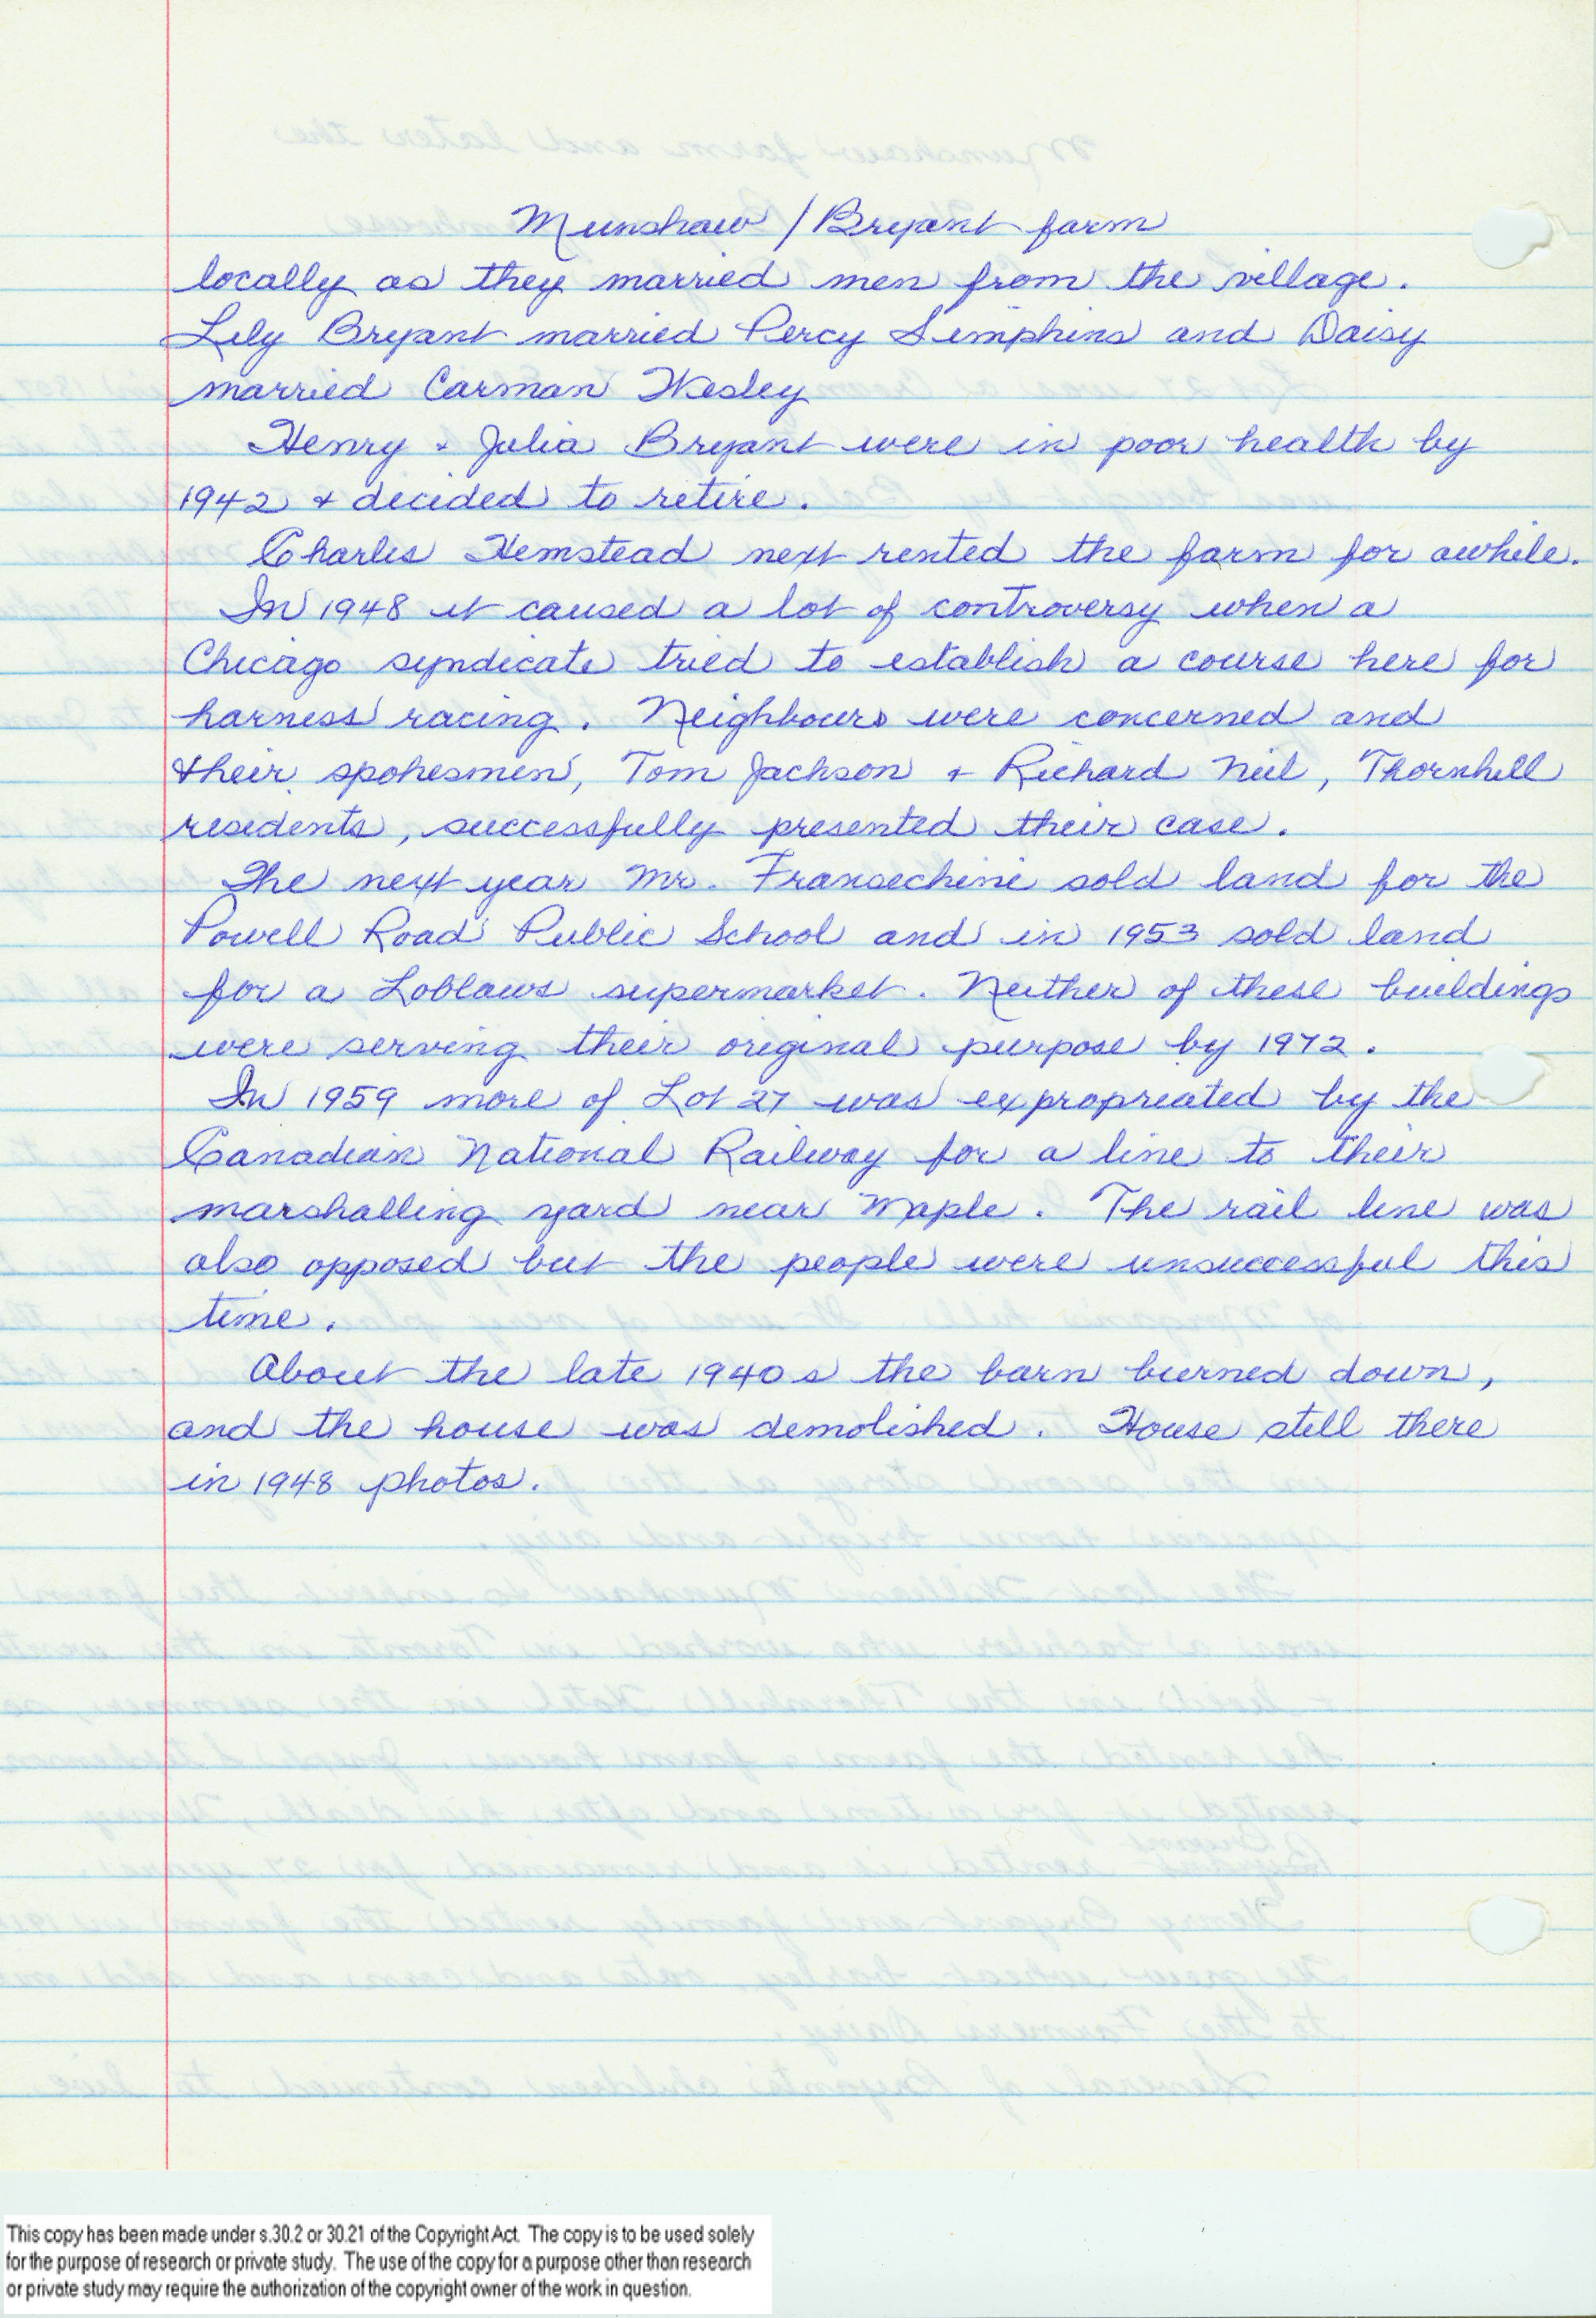 Munshaw / Bryant farm
locally as they married men from the village.
Lily Bryant married Percy Simpkins and Daisy
married Carman Wesley
Henry + Julia Bryant were in poor health by
1942 + decided to retire.
Charles Hemstead next rented the farm for awhile.
In 1948 it caused a lot of controversy when a
Chicago syndicate tried to establish a course here for
harness racing. Neighbours were concerned and
their spokesmen, Tom Jackson + Richard Neil, Thornhill
residents, successfully presented their case.
The next year Mr. Fransechine sold land for the
Powell Road Public School and in 1953 sold land
for a Loblaws supermarket. Neither of these buildings
were serving their original purpose by 1972.
In 1959 more of Lot 27 was expropriated by the
Canadian National Railway for a line to their
marshalling yard near Maple. The rail line was
also opposed but the people were unsuccessful this
time.
About the late 1940s the barn burned down,
and the house was demolished. House still there
in 1948 photos.
This copy has been made under s.30.2 or 30.21 of the Copyright Act. The copy is to be used solely
for the purpose of research or private study. The use of the copy for a purpose other than research
or private study may require the authorization of the copyright owner of the work in question.